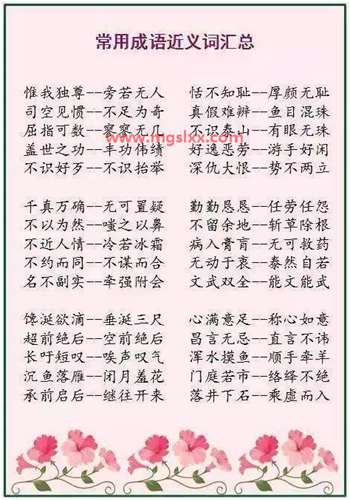 常用成语近义词汇总
惟我独尊--旁若无人 恬不知耻--厚颜无耻
司空见惯--不足为奇 真假难辨--鱼目混珠
屈指可数--寥寥无几 不识泰山--有眼无珠
www.mgslxx.com
盖世之功--丰功伟绩 好逸恶劳--游手好闲
不识好歹--不识抬举 深仇大恨--势不两立
千真万确--无可置疑 勤勤恳恳--任劳任怨
不以为然--嗤之以鼻 不留余地--斩草除根
不近人情--冷若冰霜 病入膏肓--无可救药
不约而同--不谋而合 无动于衷--泰然自若
名不副实--牵强附会 文武双全--能文能武
馋涎欲滴--垂涎三尺 心满意足--称心如意
超前绝后--空前绝后 昌言无忌--直言不讳
长吁短叹--唉声叹气 浑水摸鱼--顺手牵羊
沉鱼落雁--闭月羞花 门庭若市--络绎不绝
承前启后--继往开来 落井下石--乘虚而入